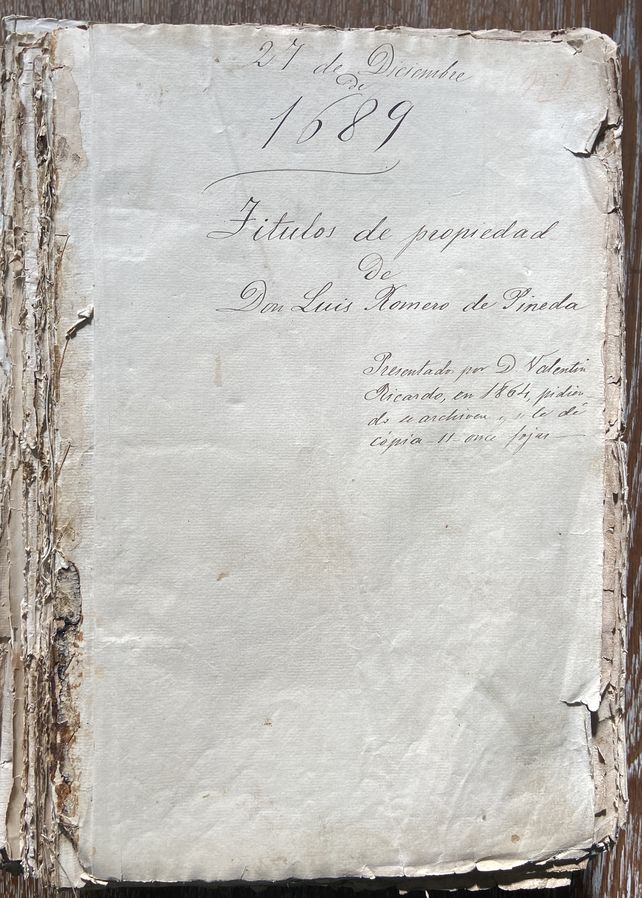 27 de Diciembre
de
1689
Titulos de propiedad
De
Don Luis Romero de Pineda
Presentado por D Valentin
Ricardo, en 1864, pidien
do se archiven y se le dé
cópia 11 once fojas